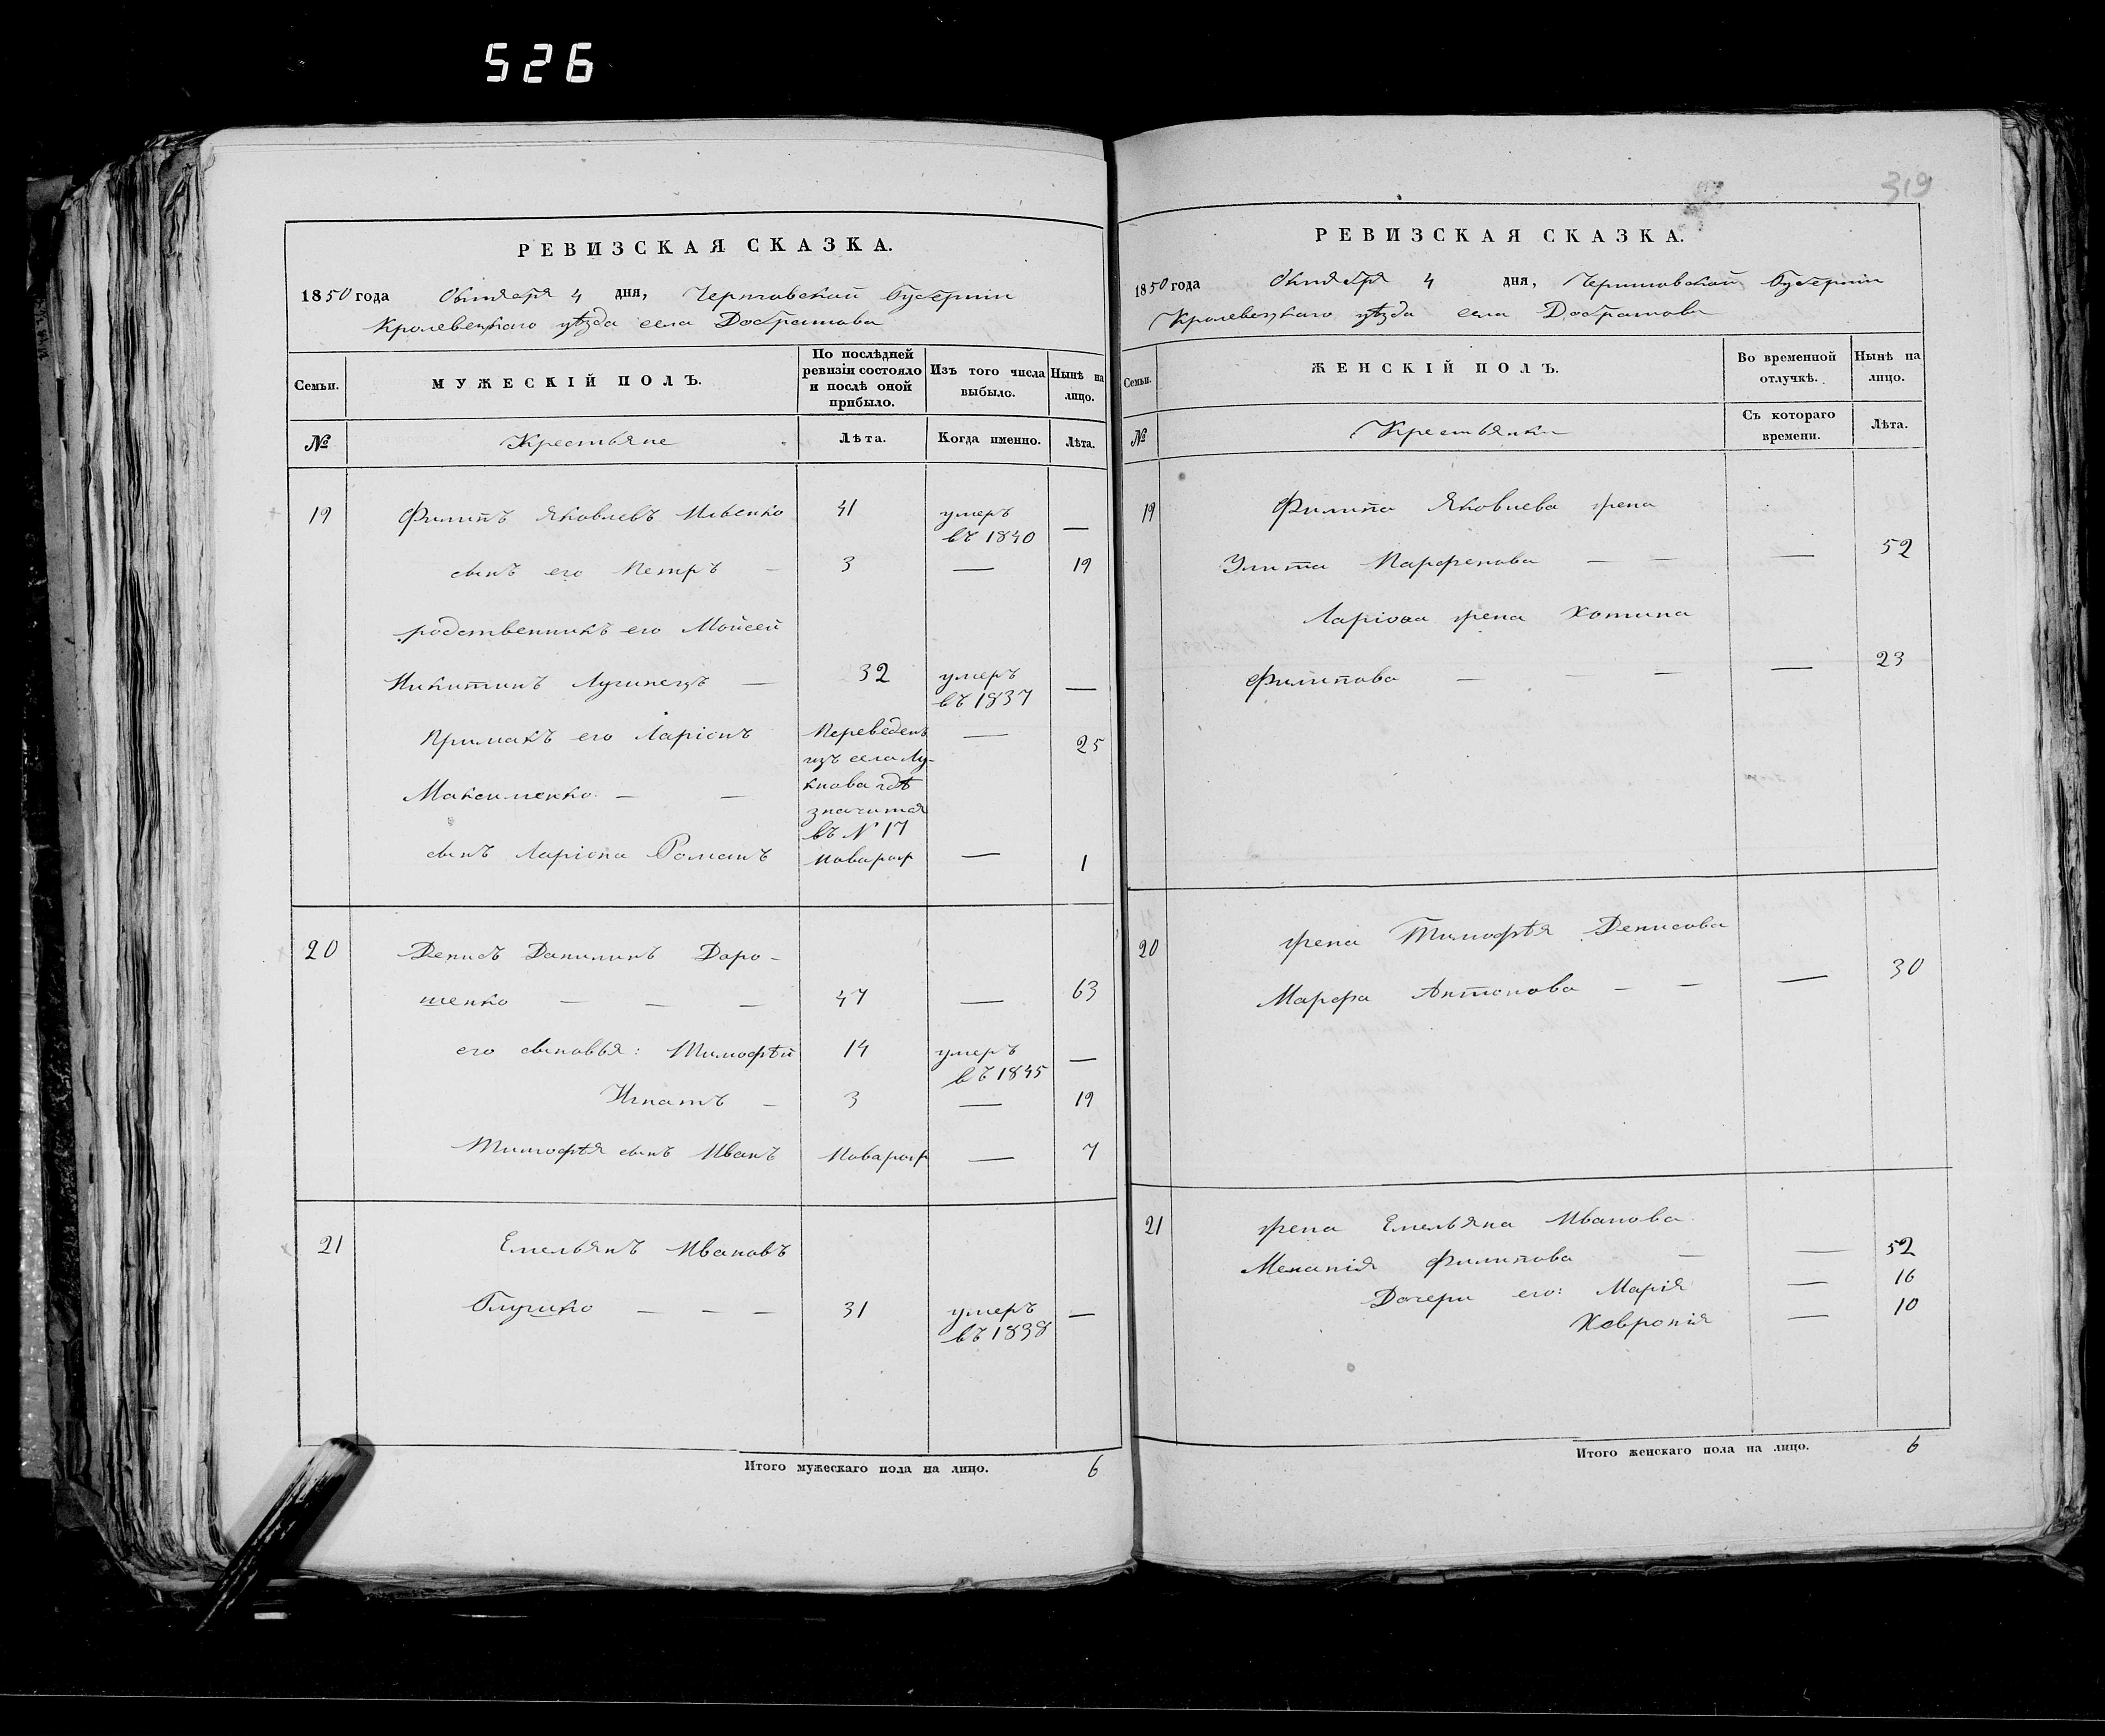 526
319
РЕВИЗСКАЯ СКАЗКА.
1850 года Октября 4 дня, Черниговской Губерніи
Кролевецкаго уѣзда села Добратова
Семьи.
МУЖЕСКІЙ ПОЛЪ.
По послѣдней ревизіи состояло и послѣ оной прибыло.
Изъ того числа выбыло.
Нынѣ на лицо.
№
Крестьяне
Лѣта.
Когда именно.
Лѣта.
19 Филипъ Яковлевъ Ивенко 41 умеръ въ 1840 —
сынъ его Петръ — 3 — 19
родственникъ его Мойсей
Никитинъ Лугинецъ — 32 умеръ въ 1837 —
Примакъ его Ларіонъ Переведенъ — 25
изъ села Лу-
Максименко — — кнова гдѣ
значится
въ № 17
сынъ Ларіона РоманъНоварож — 1
20 Денисъ Данилинъ Доро-
шенко — — — 47 — 63
его сыновья: Тимофѣй 14 умеръ въ 1845 —
Игнатъ — 3 — 19
Тимофѣя сынъ ИванъНоварож — 7
21 Емельянъ Ивановъ
Глушко — — — 31 умеръ въ 1838 —
Итого мужескаго пола на лицо. 6
РЕВИЗСКАЯ СКАЗКА.
1850 года Октября 4 дня, Черниговской Губерніи
Кролевецкаго уѣзда села Добратова
Семьи.
ЖЕНСКІЙ ПОЛЪ.
Во временной отлучкѣ.
Нынѣ на лицо.
№
Крестьянки
Съ котораго времени.
Лѣта.
19 Филипа Яковлева жена
Улита Парфенова — — — 52
Ларіона жена Хотина
Филипова — — — — 23
20 жена Тимофѣя Денисова
Марфа Антонова — — — 30
21 жена Емельяна Иванова
Меланія Филипова — — 52
Дочери его: Марія — 16
Хевронія — 10
Итого женскаго пола на лицо. 6